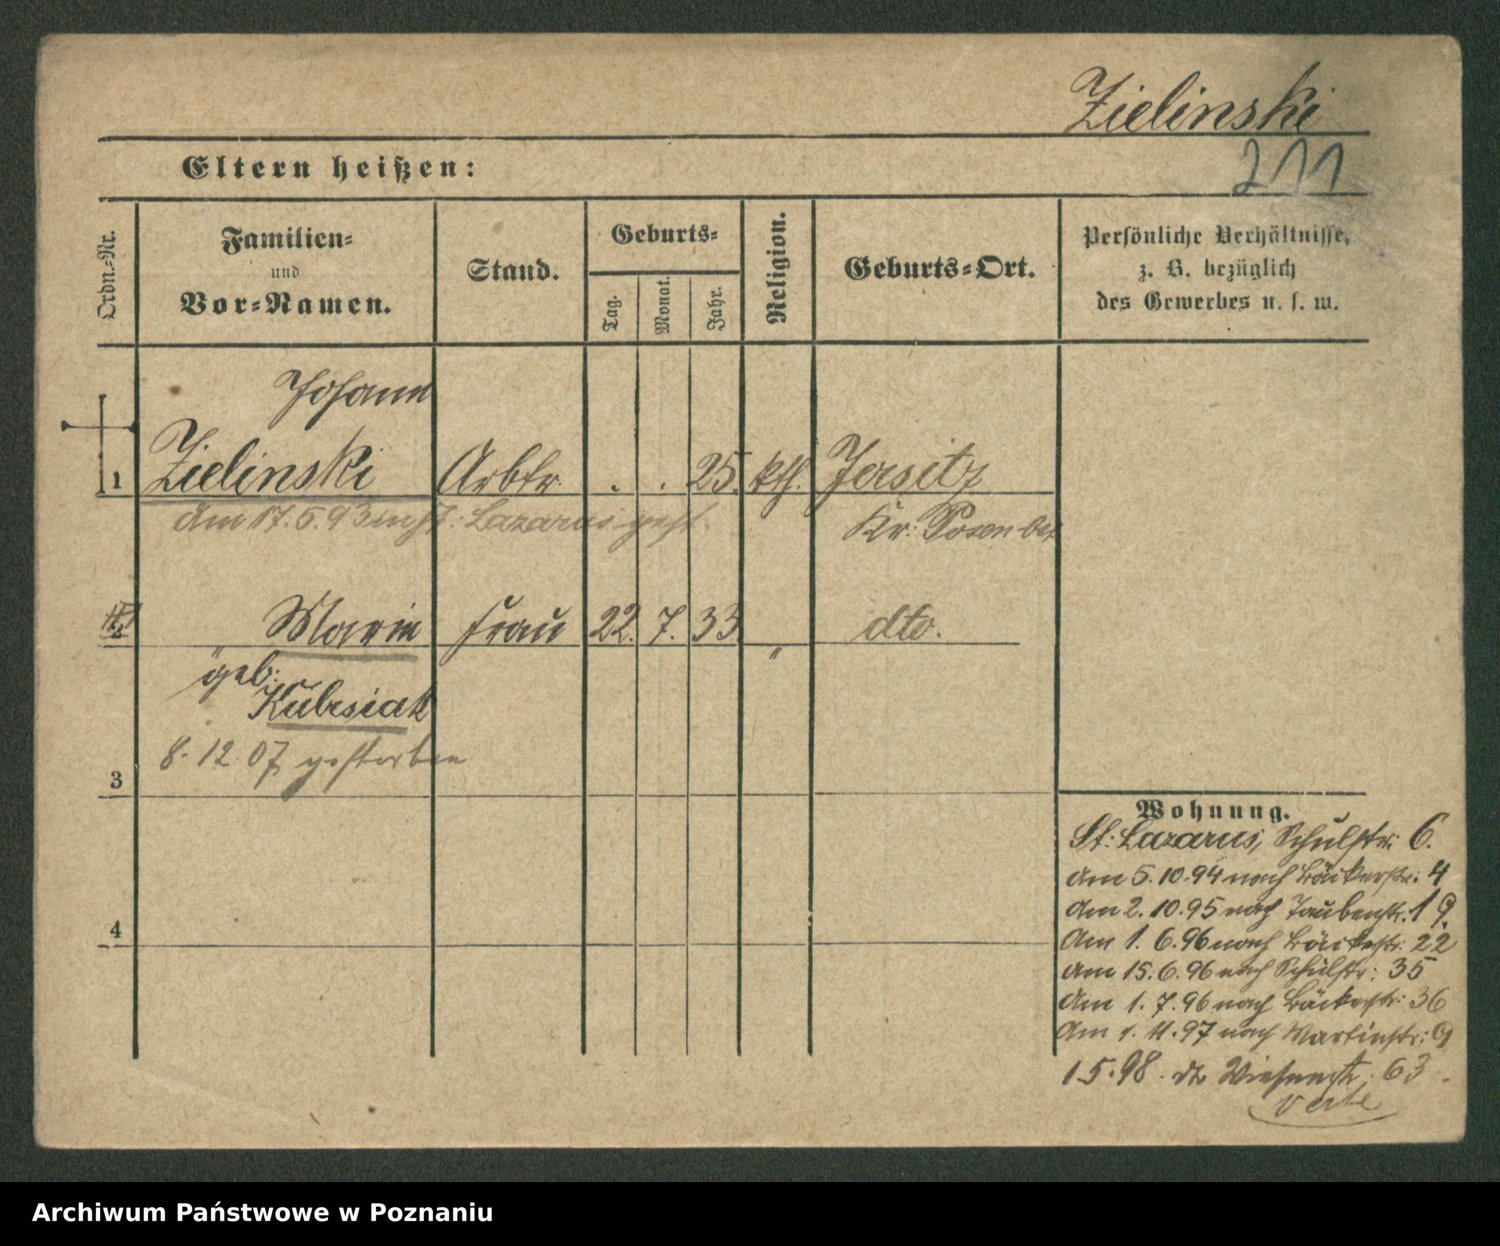 Zielinski
211
Eltern heißen:
Ordn.-Nr.
Familien-
und
Vor-Namen.
Stand.
Geburts-
Tag.
Monat.
Jahr.
Religion.
Geburts-Ort.
Persönliche Verhältnisse,
z. B. bezüglich
des Gewerbes u. s. w.
Johann
1 Zielinski Arbtr. . . 25. kth. Jersitz
Am 17.5.93 in St. Lazarus gest.
Kr. Posen Ost
2 Marie Frau 22. 7. 33 " dto.
geb.
Kubsiak
8. 12. 07 gestorben
3
4
Wohnung.
St. Lazarus, Schulstr. 6.
Am 5.10.94 nach Bäckerstr. 4
Am 2.10.95 nach Taubenstr. 19.
Am 1.6.96 nach Bäckestr. 22
Am 15.6.96 nach Schulstr: 35
Am 1.7.96 nach Bäckestr: 36
Am 1.11.97 nach Martinstr: 9
1.5.98. Wiesenstr. 63
verte
Archiwum Państwowe w Poznaniu